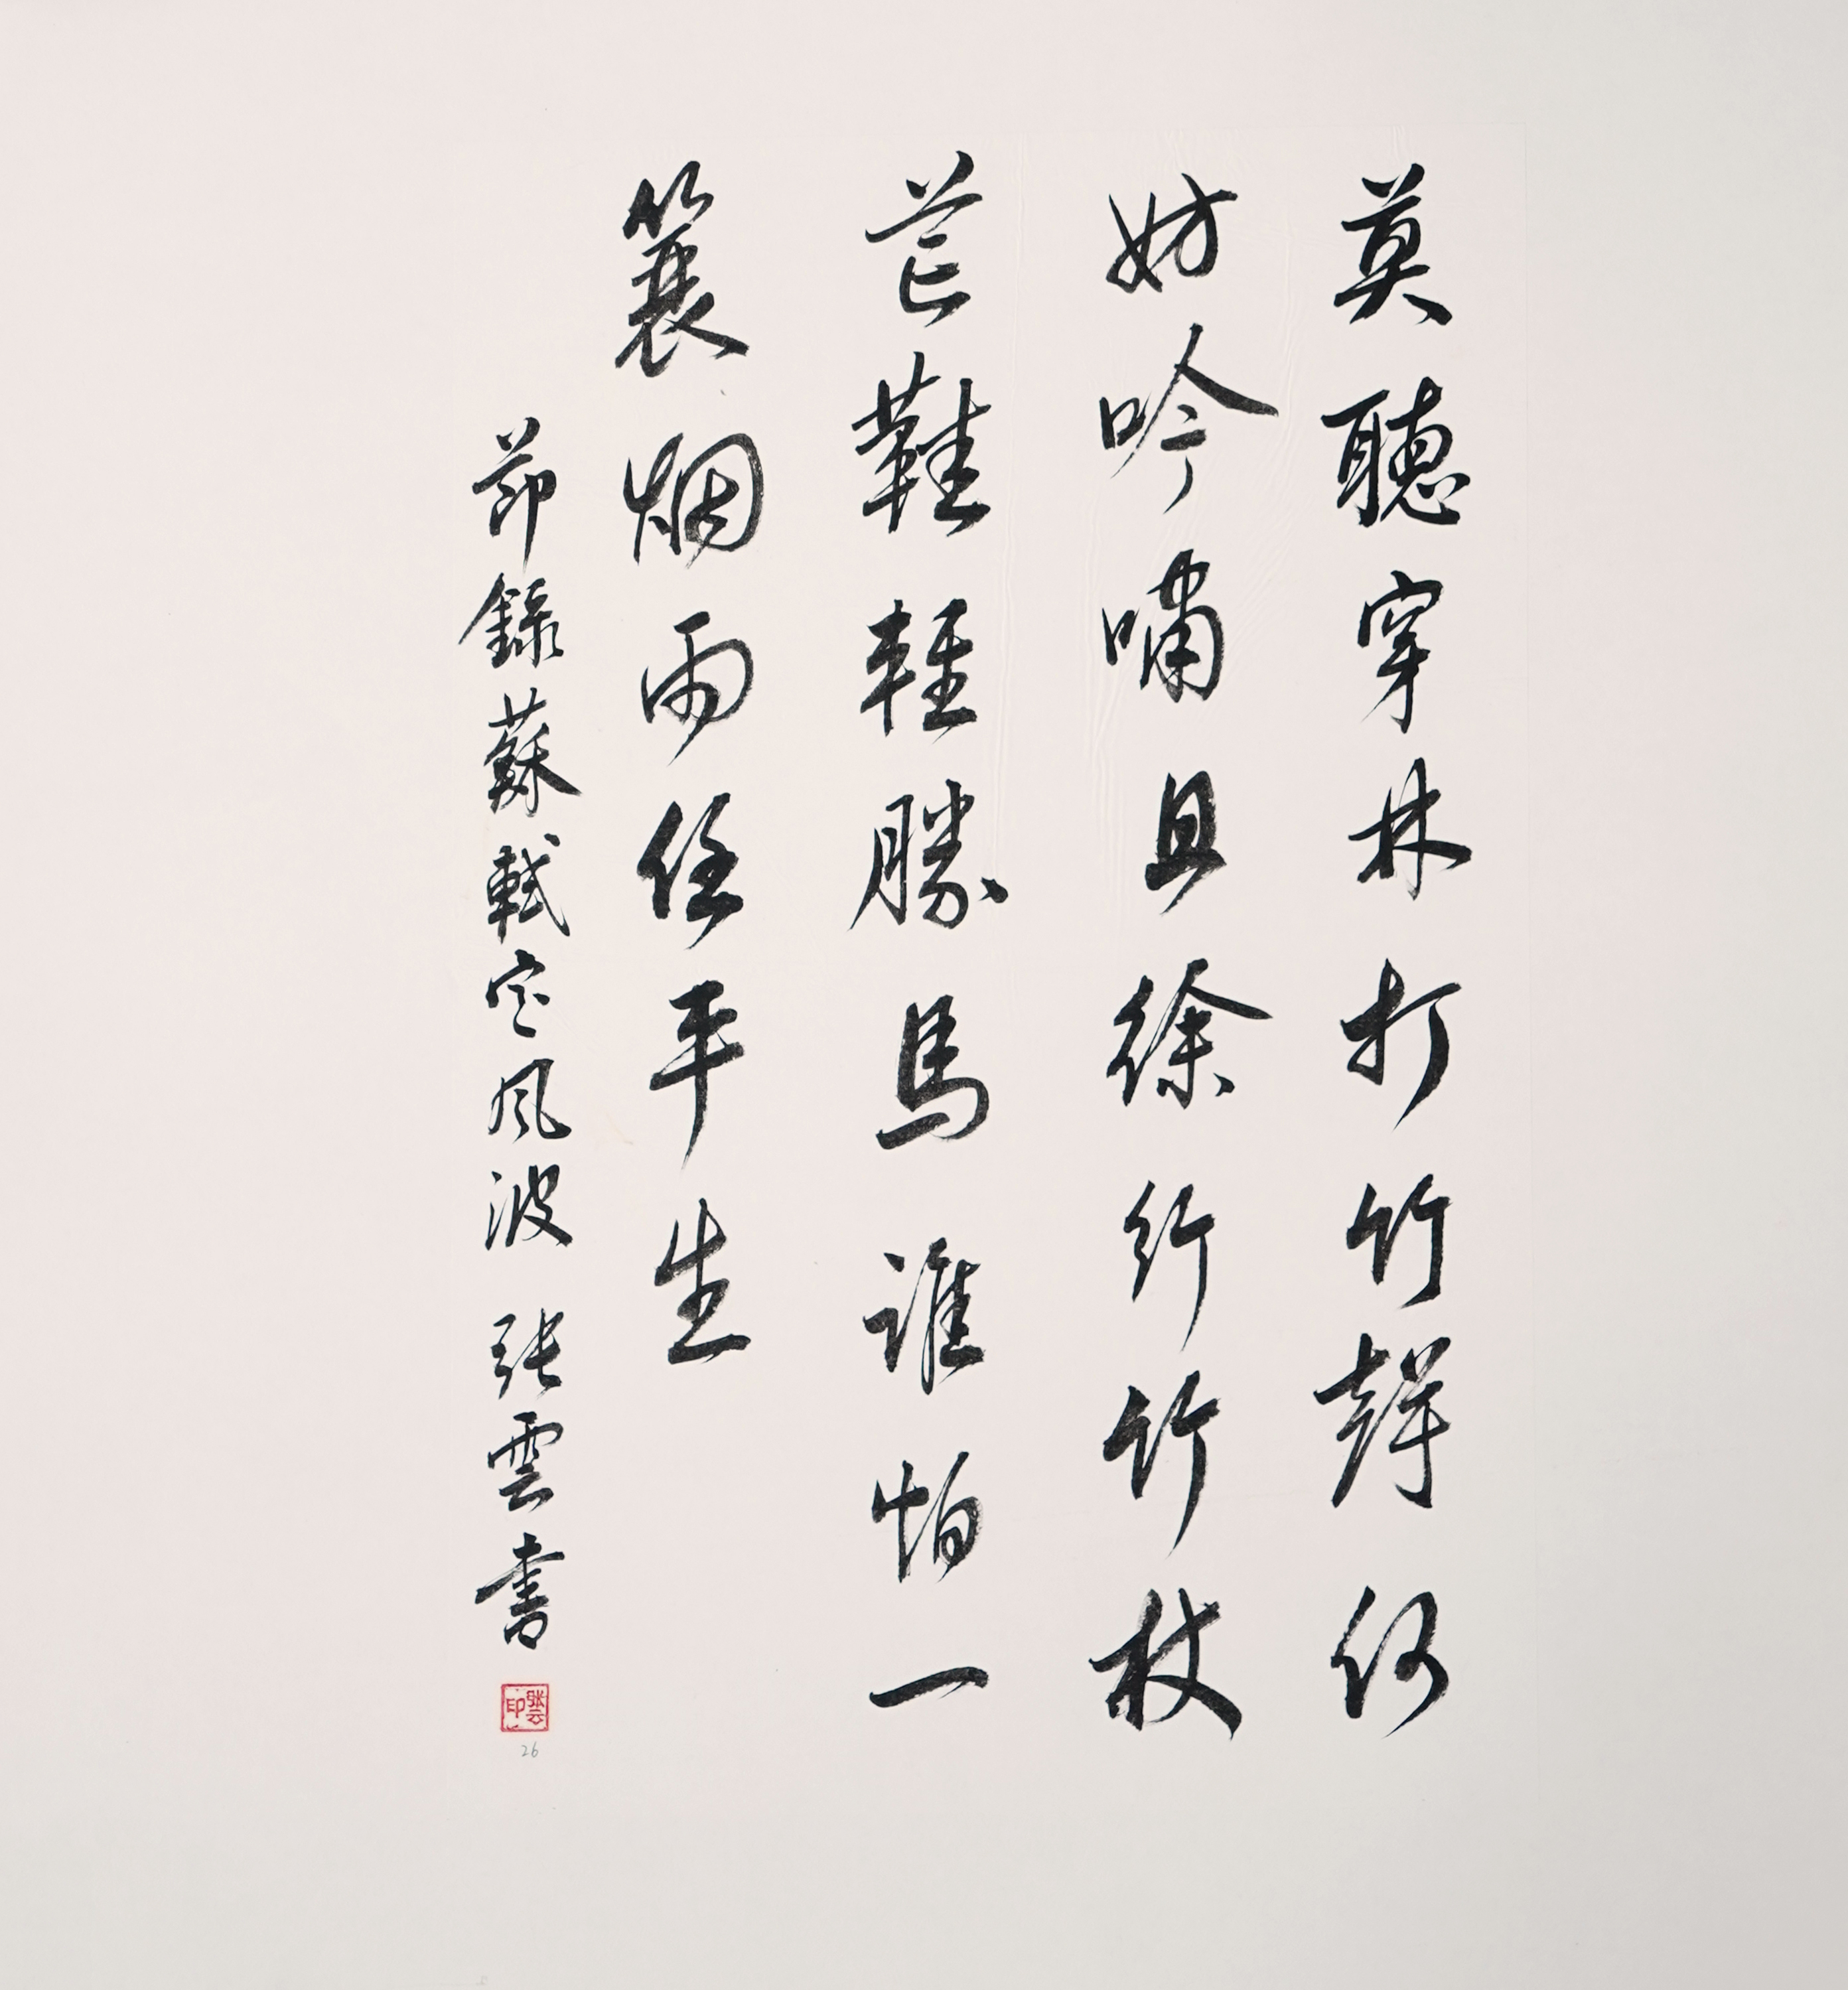 莫聽穿林打竹聲何
妨吟嘯且徐行竹杖
芒鞋輕勝馬誰怕一
蓑烟雨任平生
節錄蘇軾定風波 張雲書
張云印
26